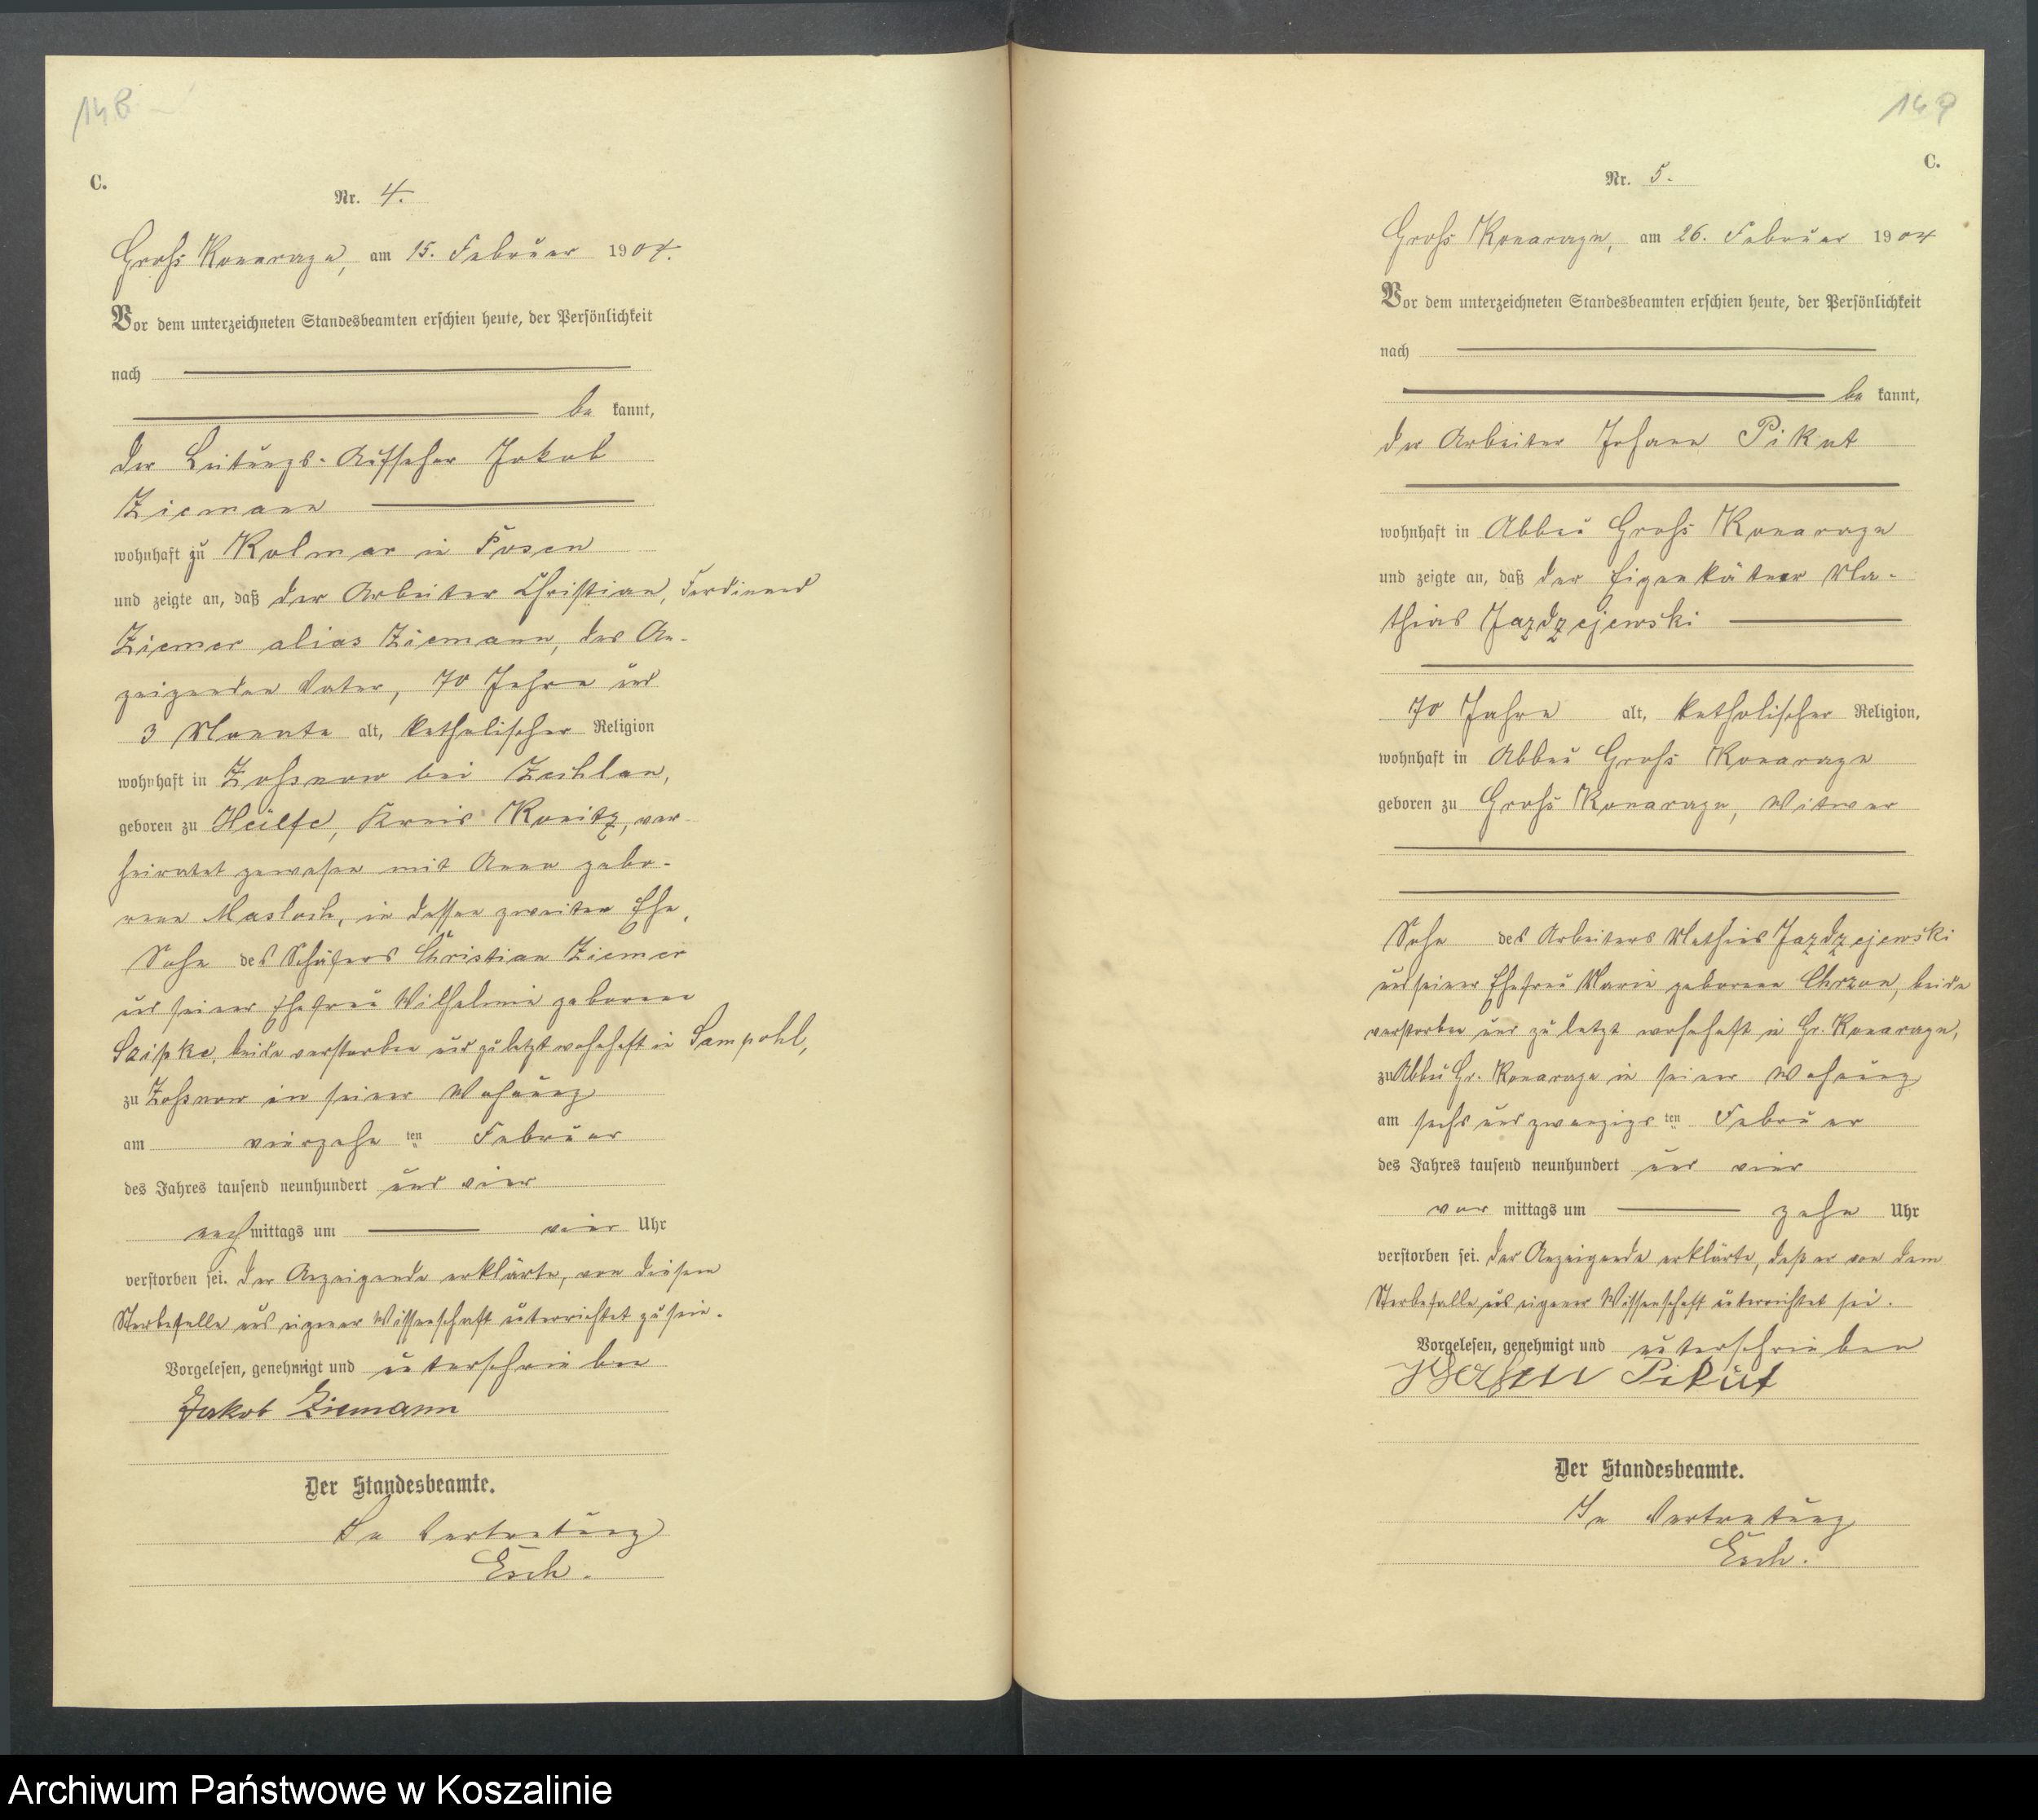 148
C.
Nr. 4.
Groß Konarczyn, am 15. Februar 1904.
Vor dem unterzeichneten Standesbeamten erschien heute, der Persönlichkeit
nach
be kannt,
der Leitungs-Aufseher Jakob
Ziemann
wohnhaft zu Kolmar in Posen
und zeigte an, daß der Arbeiter Christian, Ferdinand
Ziemer alias Ziemann, des An-
zeigenden Vater, 70 Jahre und
3 Monate alt, katholischer Religion
wohnhaft in Zoßnow bei Zechlau,
geboren zu Heilfe, Kreis Konitz, ver-
heiratet gewesen mit Anna gebo-
rene Masloch, in dessen zweiter Ehe,
Sohn des Schäfers Christian Ziemer
und seiner Ehefrau Wilhelmine geborene
beide verstorben und zuletzt wohnhaft in Sampohl,
zu Zoßnow in seiner Wohnung
am vierzehnten Februar
des Jahres tausend neunhundert und vier
nachmittags um vier Uhr
verstorben sei. Der Anzeigende erklärte, von diesem
Sterbefalle aus eigener Wissenschaft unterrichtet zu sein.
Vorgelesen, genehmigt und unterschrieben
Jakob Ziemann
Der Standesbeamte.
In Vertretung
Esch.
149
C.
Nr. 5.
Groß Konarczyn, am 26. Februar 1904
Vor dem unterzeichneten Standesbeamten erschien heute, der Persönlichkeit
nach
be kannt,
der Arbeiter Johann Pikut
wohnhaft in Abbau Groß Konarczyn
und zeigte an, daß der Eigenkätner Ma-
thias Jazdzejewski
70 Jahre alt, katholischer Religion,
wohnhaft in Abbau Groß Konarczyn
geboren zu Groß Konarczyn, Witwer
Sohn des Arbeiters Mathias Jazdzejewski
und seiner Ehefrau Marie geborene Chrzan, beide
verstorben und zuletzt wohnhaft in Gr. Konarczyn,
zu Abbau Gr. Konarczyn in seiner Wohnung
am sechs und zwanzigsten Februar
des Jahres tausend neunhundert und vier
vor mittags um zehn Uhr
verstorben sei. Der Anzeigende erklärte, daß er von dem
Sterbefalle aus eigener Wissenschaft unterrichtet sei.
Vorgelesen, genehmigt und unterschrieben
Johann Pikut
Der Standesbeamte.
In Vertretung
Esch.
Archiwum Państwowe w Koszalinie